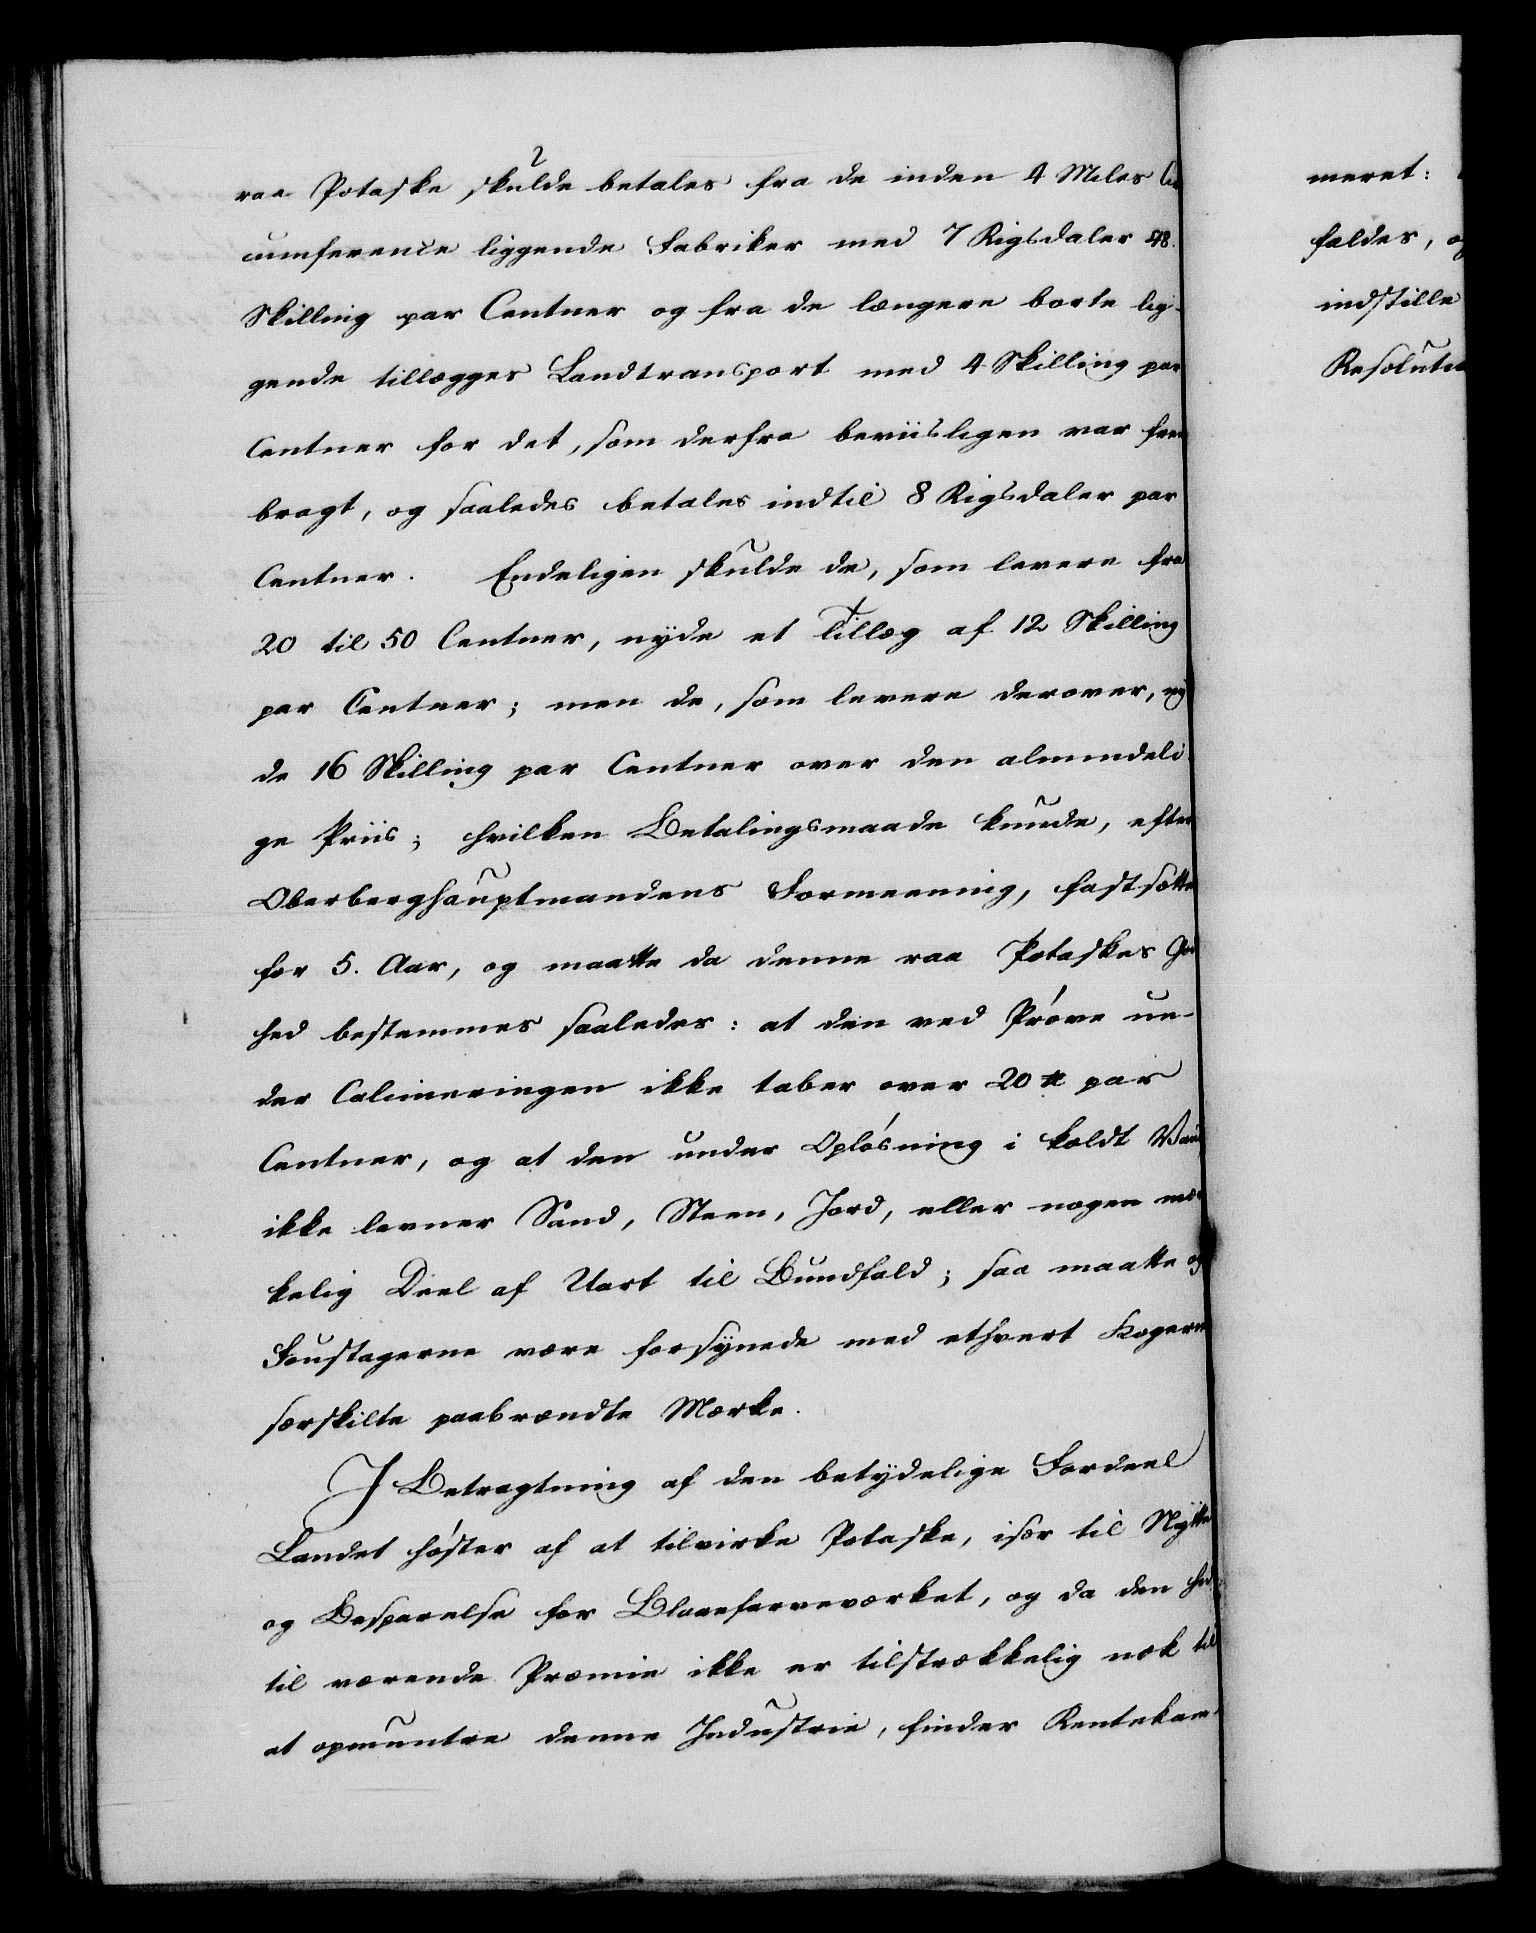 raa Potaske skulde betales fra de inden 4 Miles Cir
cumference liggende Fabriker med 7 Rigsdaler 48.
Skilling par Centner og fra de længere borte lig-
gende tillægges Landtransport med 4 Skilling par
Centner for det, som derfra beviisligen var frem
bragt, og saaledes betales indtil 8 Rigsdaler par
Centner. Endeligen skulde de, som levere fra
20 til 50 Centner, nyde et Tillæg af 12 Skilling
par Centner; men de, som levere derover, ny
de 16 Skilling par Centner over den almindeli
ge Priis; hvilken Betalingsmaade kunde, efter
Oberberghauptmandens Formeening, fastsætte
for 5. Aar, og maatte da denne raa Potaskes God
hed bestemmes saaledes: at den ved Prøve un-
der Calcineringen ikke taber over 20 ℔ par
Centner, og at den under Opløsning i koldt Vand
ikke levner Sand, Steen, Jord, eller nogen mær
kelig Deel af Uart til Bundfald; saa maatte og
Foustagerne være forsynede med ethvert Kogerie
særskilte paabrændte Mærke.
I Betragtning af den betydelige Fordeel
Landet høster af at tilvirke Potaske, især til Nytte
og Besparelse for Blaaefarveværket, og da den hid
til værende Præmie ikke er tilstrækkelig nok til
at opmuntre denne Industrie, finder Rentekam-
meret:
faldes, og
indstille
Resolution